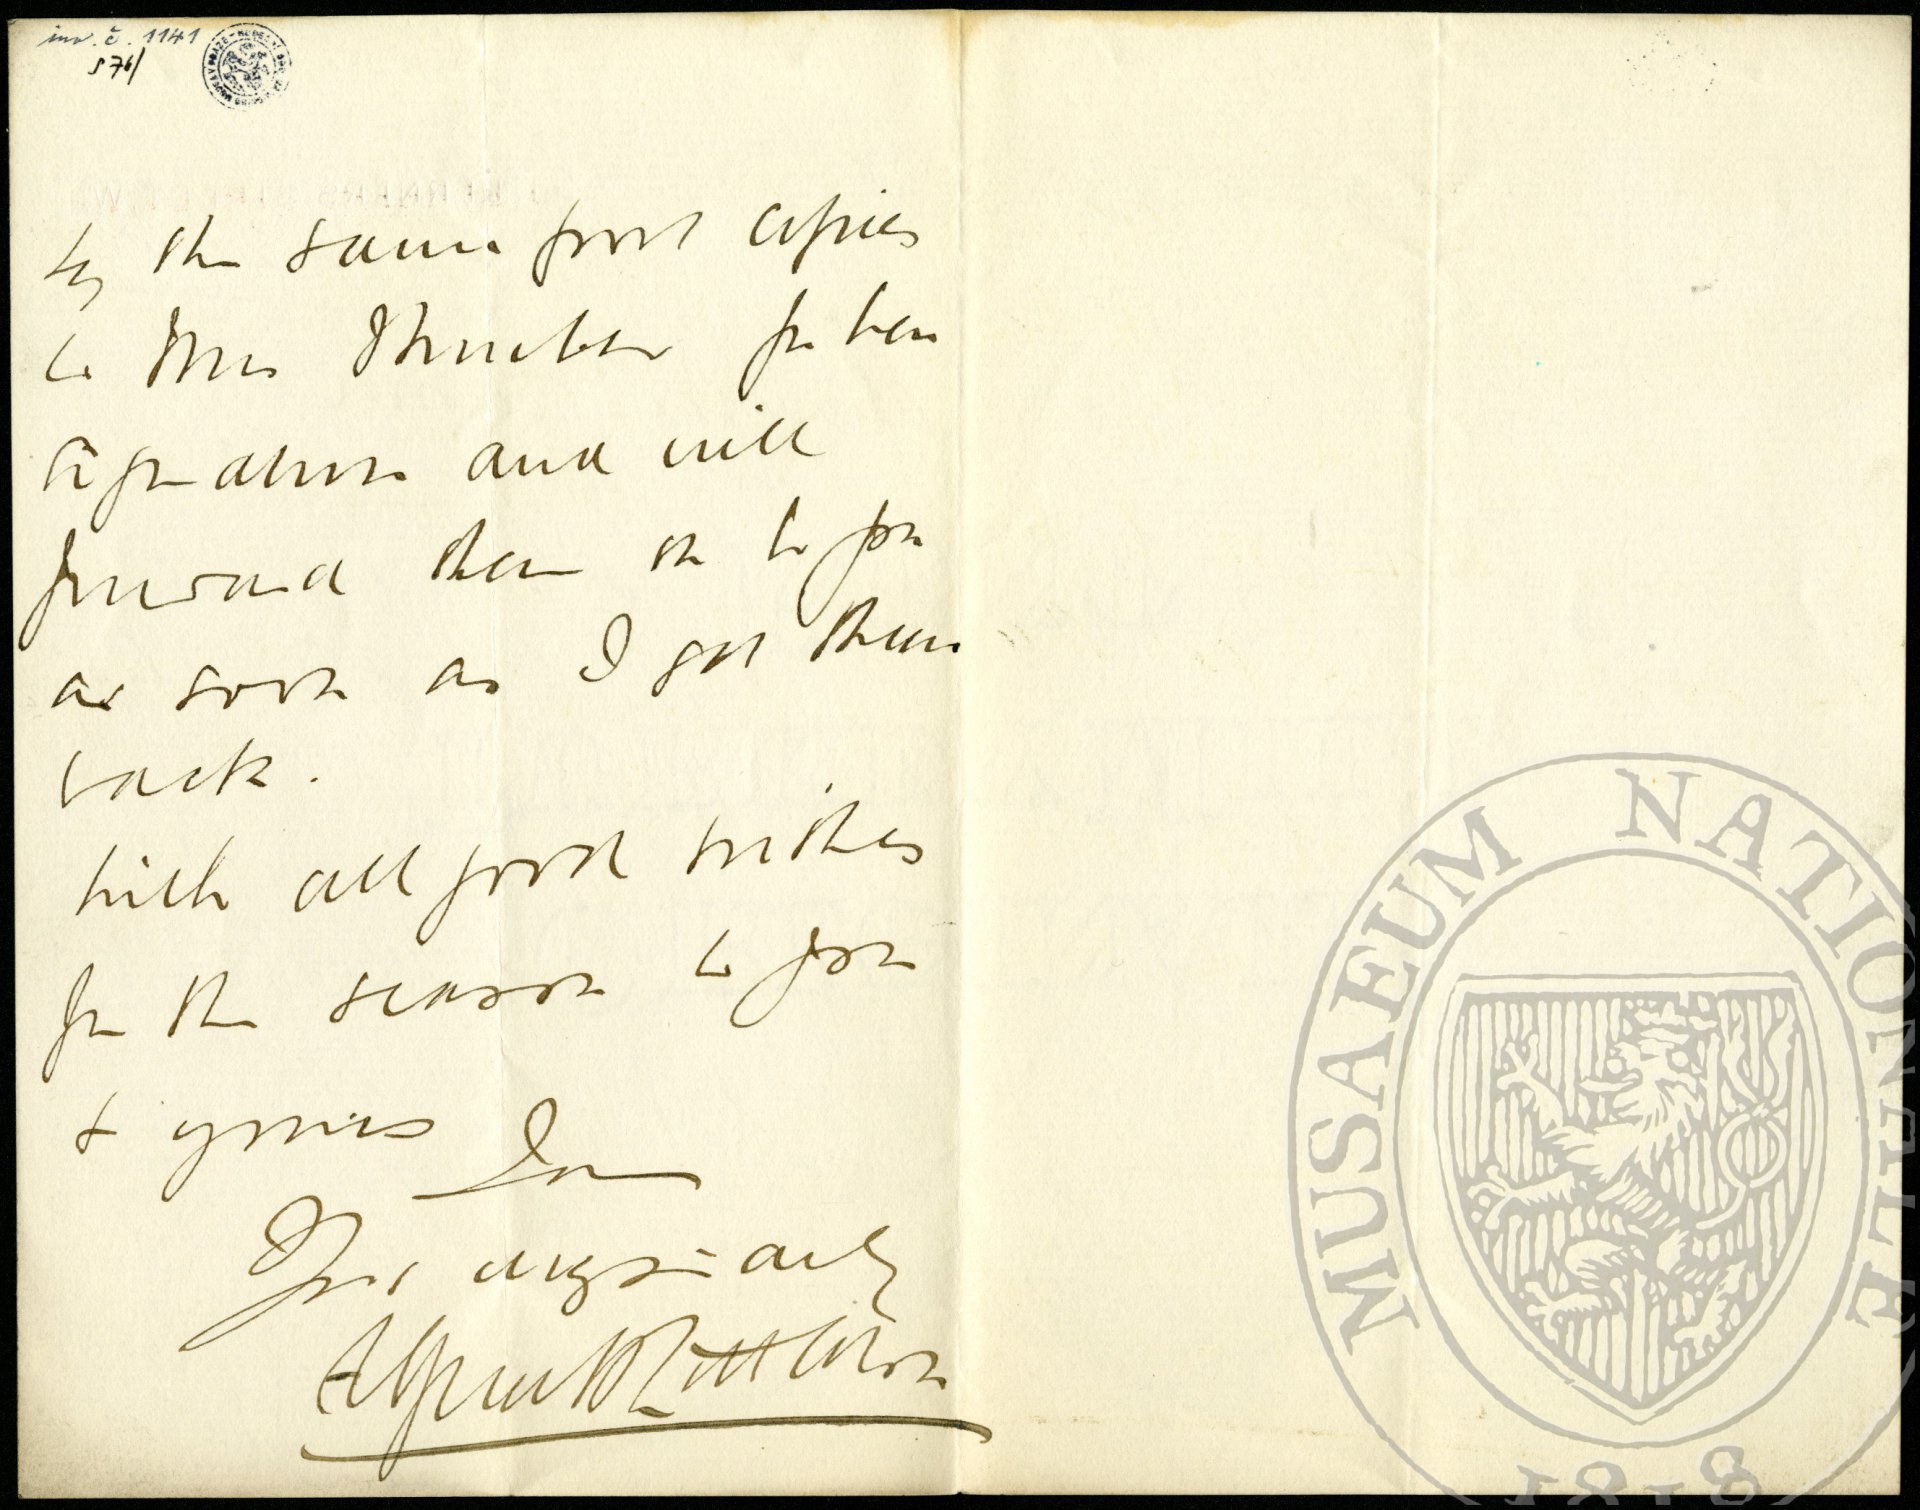 inv. č. 1141
S 76/
by the same post copies
to Mrs Thurber for her
signature and will
forward them on to you
as soon as I get them
back.
With all good wishes
for the season to you
& yours
I am
Yrs very sincerely
Alfred Littleton
MUSAEUM NATIONALE
1818